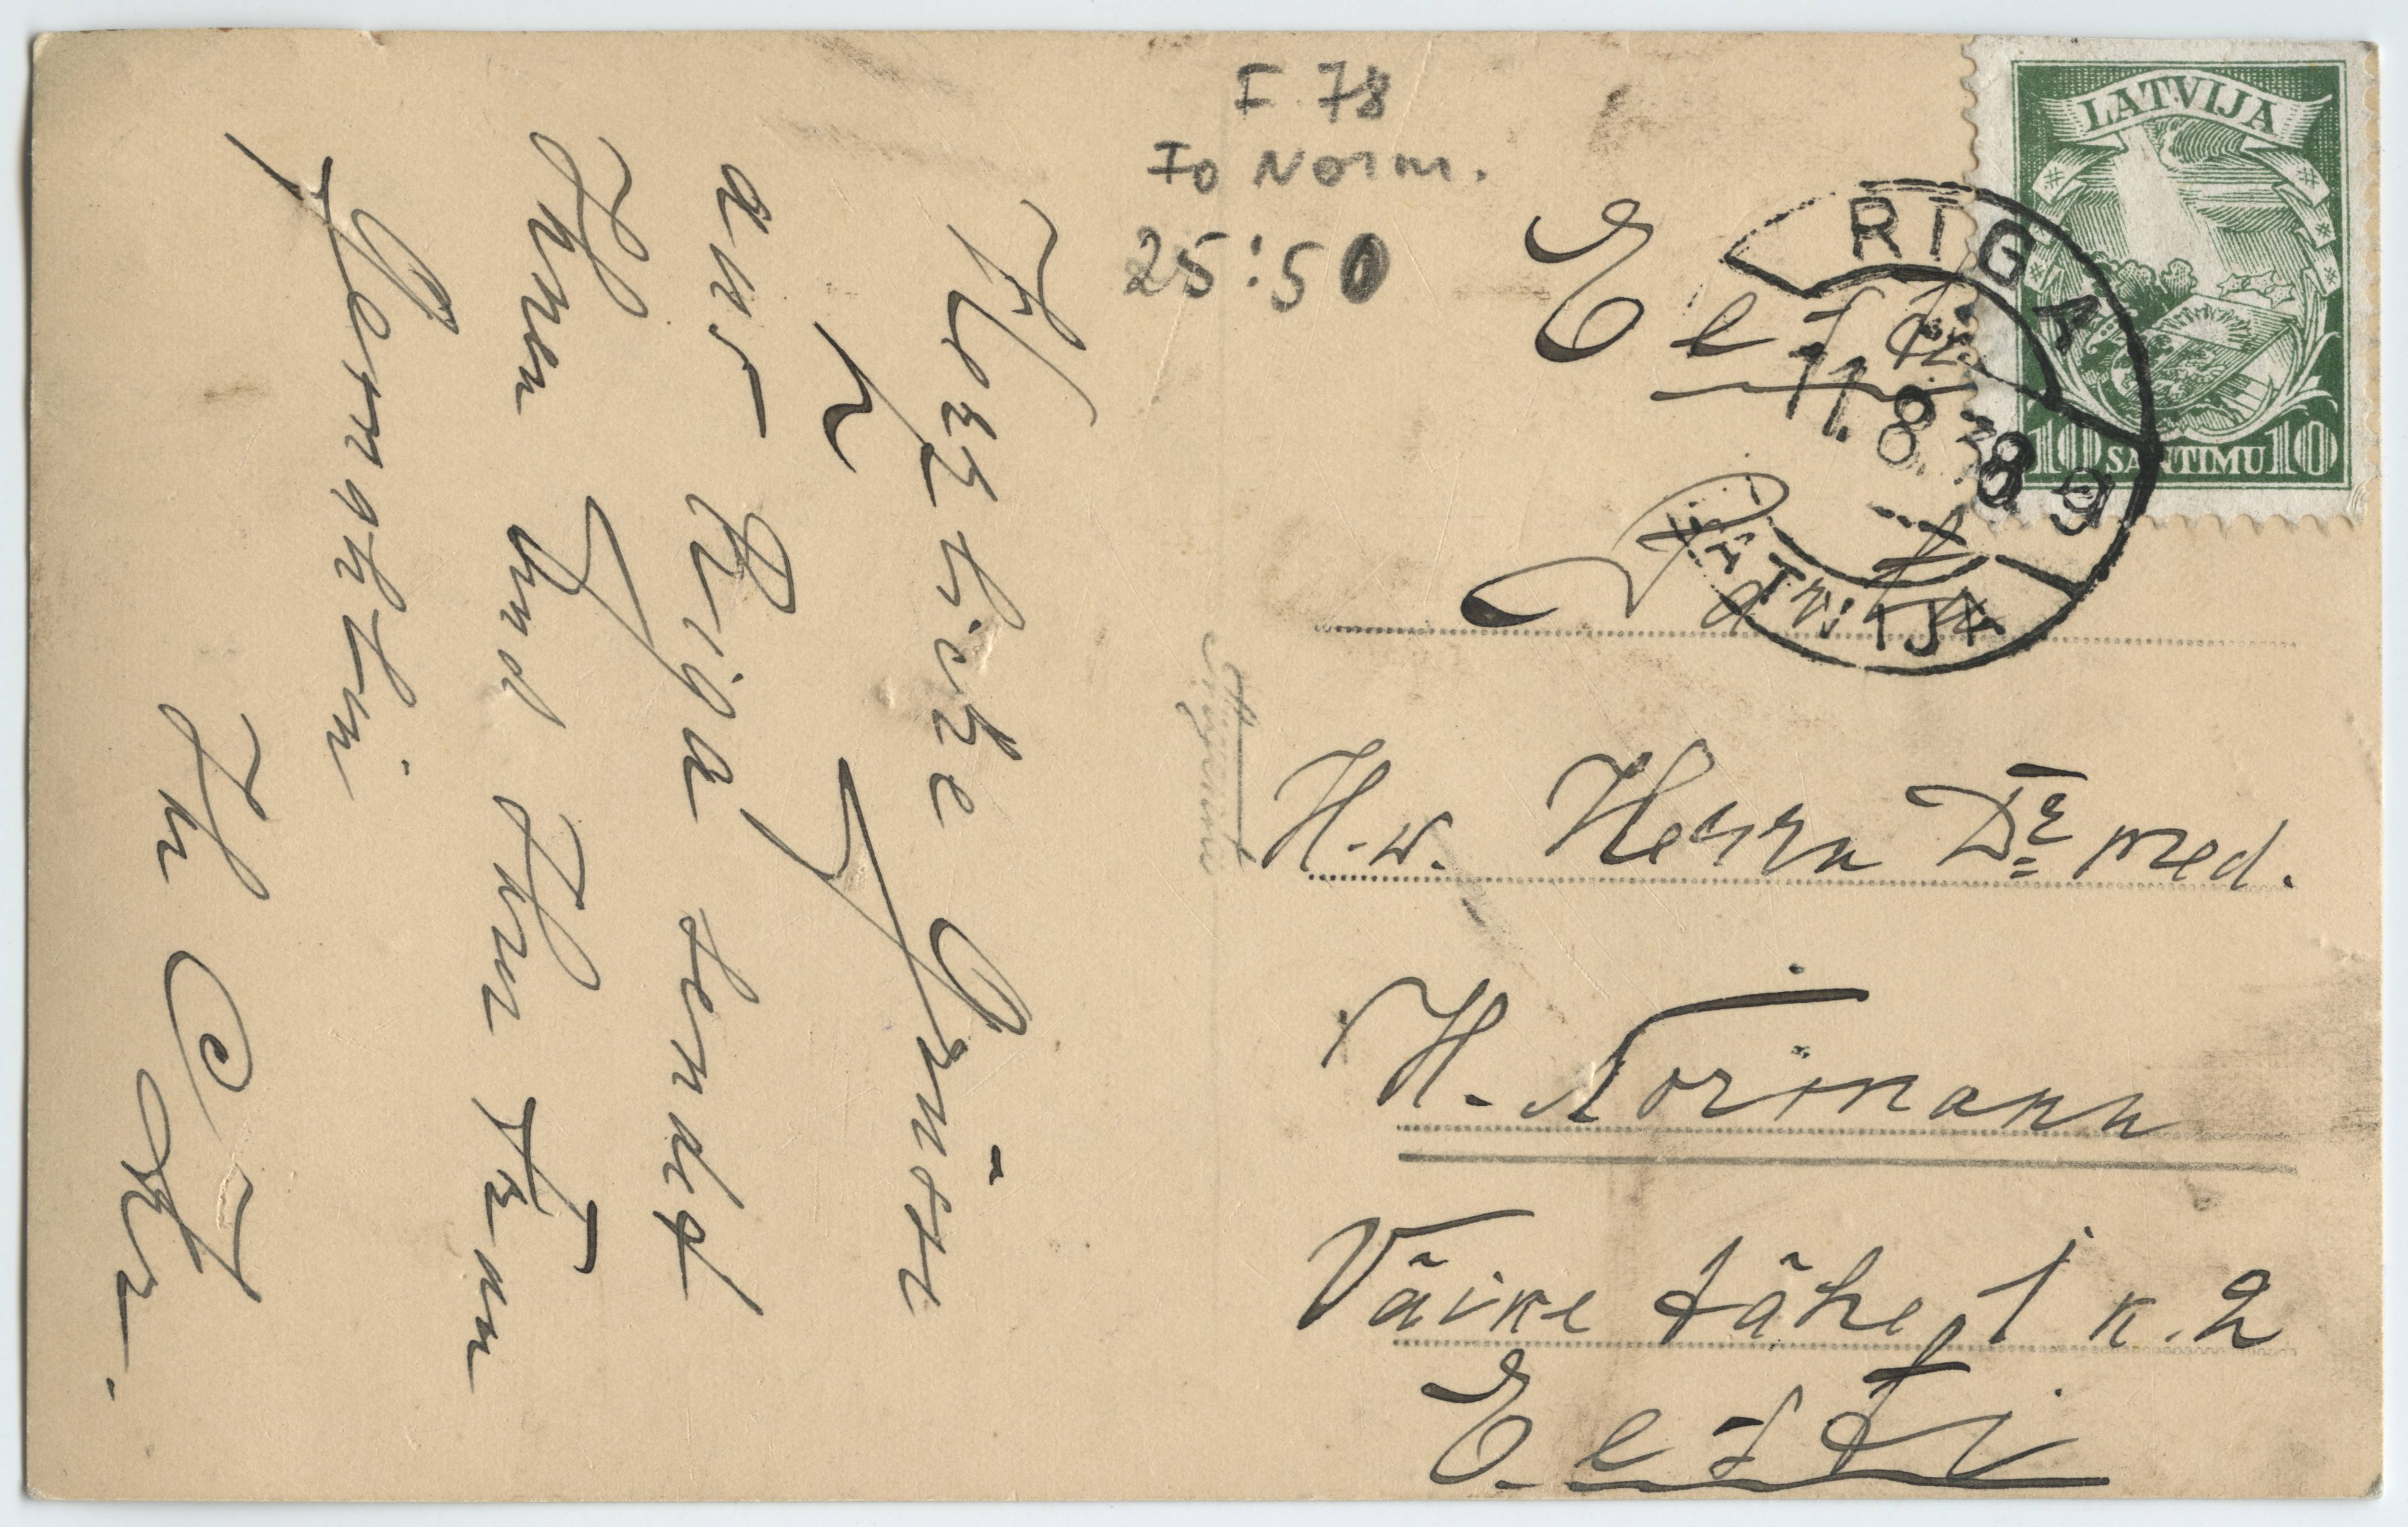 F 78
Fo Norm.
25:50
LATVIJA
10 SANTIMU 10
RIGA
11.8.38 9
LATVIJA
Eesti
Tartu
H.w. Herrn Dr med.
H. Normann
Väike tähe, 1 k. 2
Eesti
Herzliche Grüsse
aus Riga sendet
Ihnen und Ihrer Frau
Gemahlin
Ihr